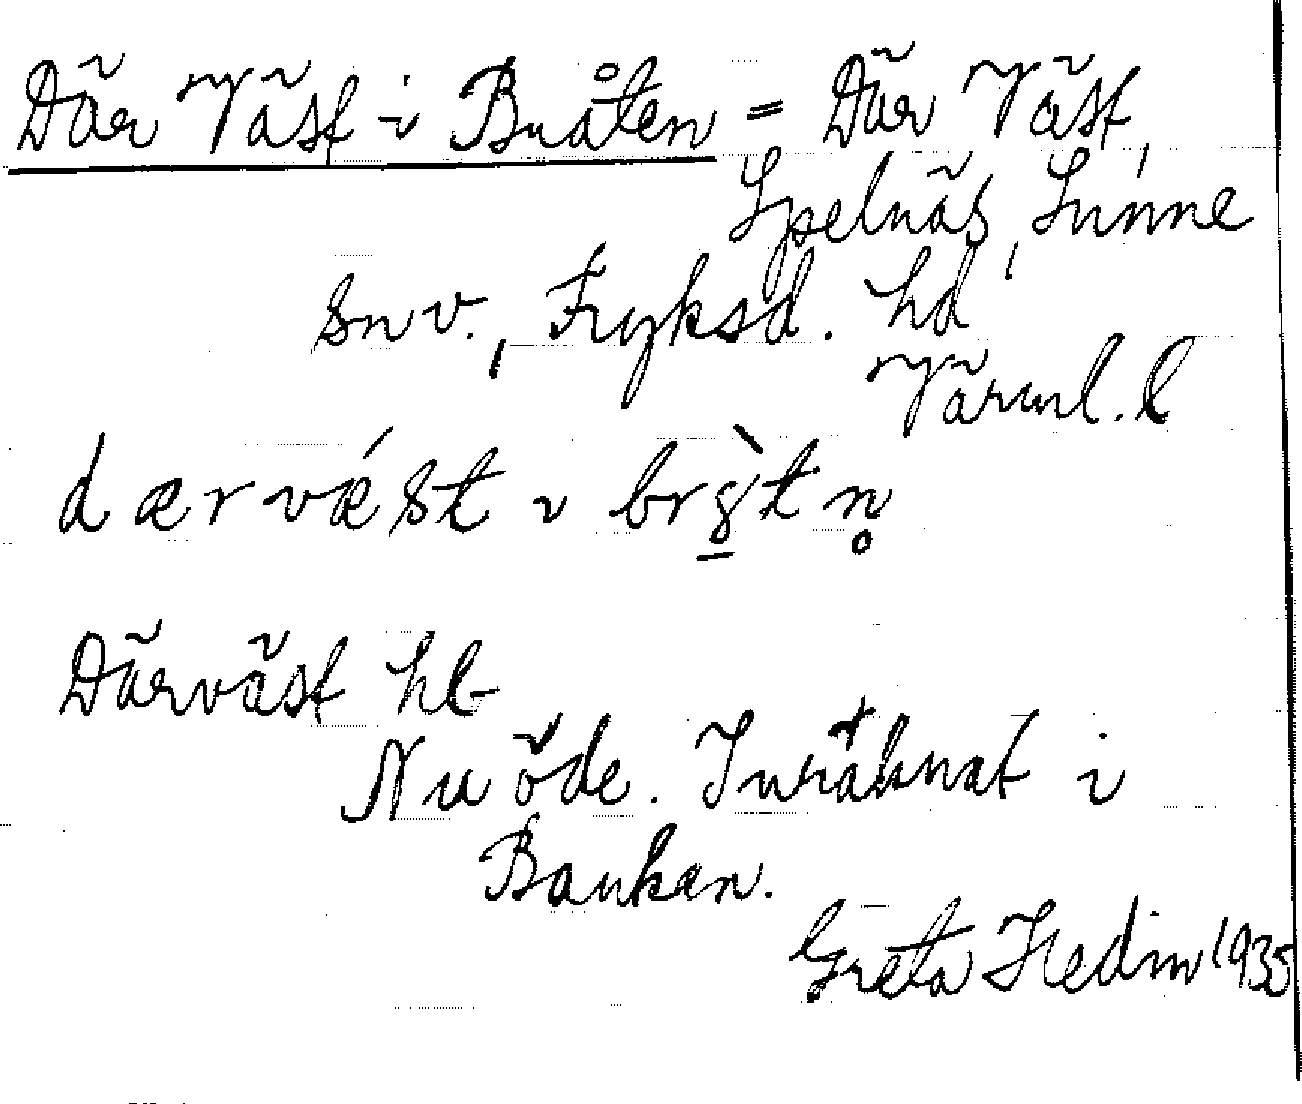 Där Väst i Bråten = Där Väst,
Spelnäs, Sunne
sn v., Fryksd. hd
Värml. l
dærvǽst ı br&#x0331;tn̥
Därväst hl-
Nu öde. Inräknat i
Backan.
Greta Hedin 1935